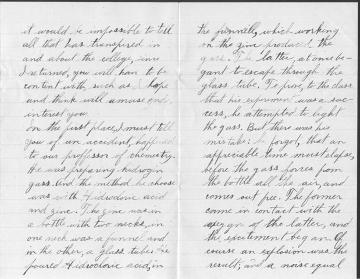 it would be impossible to tell
all that has transpired in
and about the college, since
I returned, you will have to be
content with such as I hope
and think will amuse and
interest you
In the first place, I must tell
you of an accident, happened
to our professor of chemistry.
He was preparing hydrogen
gas. And the method he choose
was with Hidrocloric acid
and zinc. The zinc was in
a bottle with two necks, in
one neck was a funnel and
in the other, a glass tube. He
poured Hidrocloric acid, in
the funnell, which working
on the zinc produced the
gass. The latter, at once be-
gant to escape through the
glass tube. To prove, to the class
that his experiment was a suc-
cess, he attempted to light
the gass. But there was his
mistake: he forgot, that an
appreciable time must elapse,
before the gass forces from
the bottle all the air, and
comes out free. The former
came in contact with the
oxygen of the latter, and
the excitement began. Of
course an explosion was the
result; and a noise equal